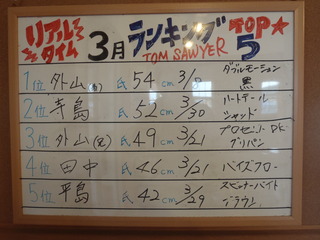 リアルタイム 3月 ランキング TOP★5
TOM SAWYER
1位 外山 氏 54cm 3/ ダブルモーション 黒
2位 寺島 氏 52cm 3/30 ハートテール シャッド
3位 外山 氏 49cm 3/21 プロセンコ DK グリパン
4位 田中 氏 46cm 3/21 バイズフロー
5位 平島 氏 42cm 3/29 スピナーベイト